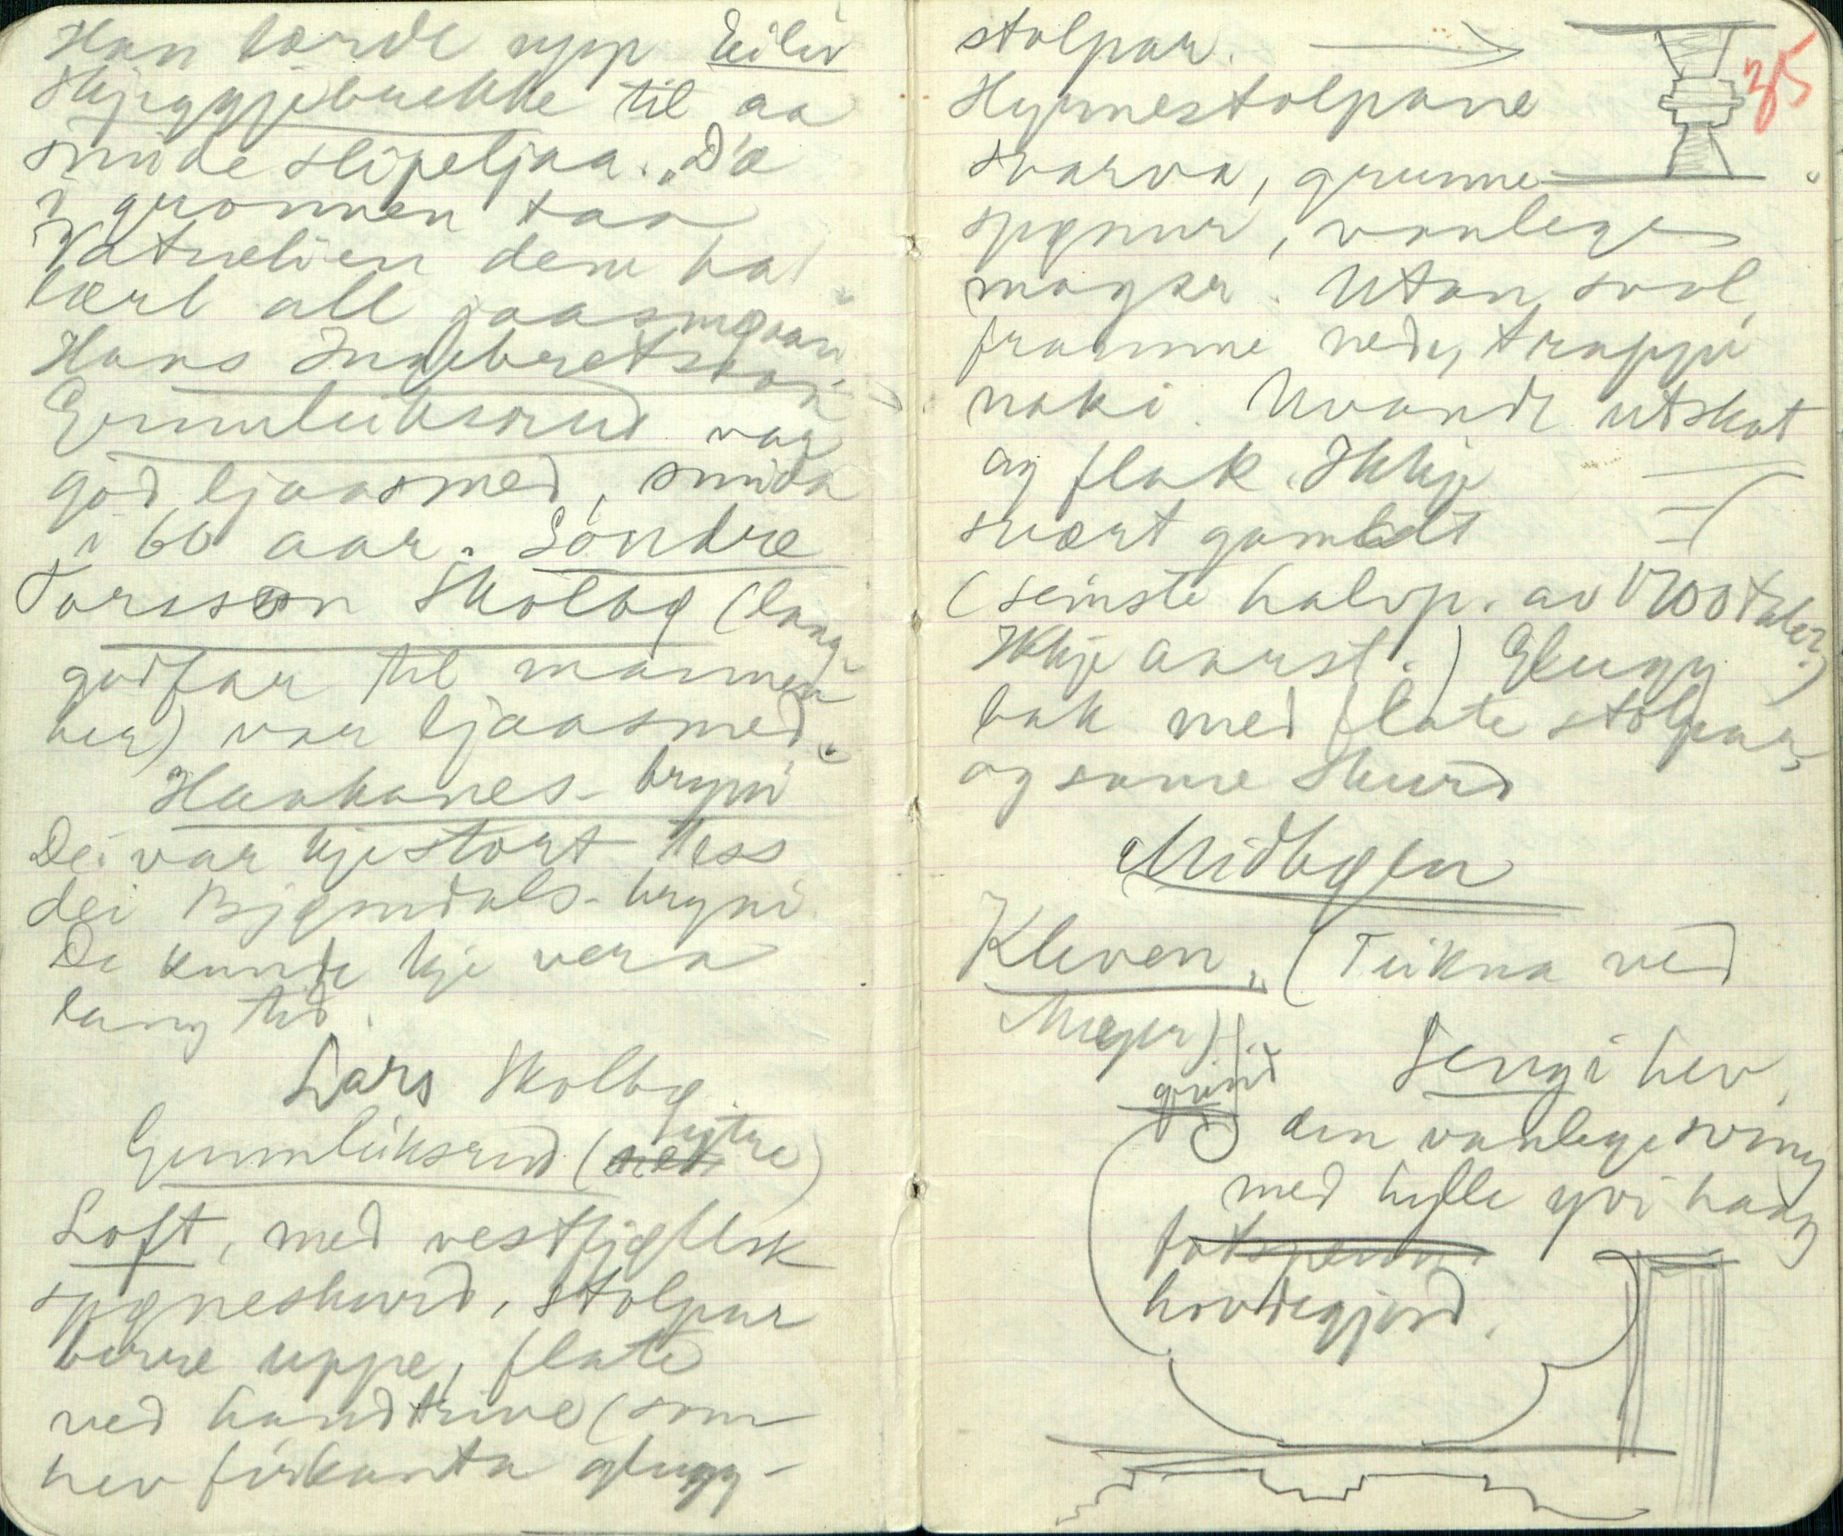 Han lærde upp Eiliv
Skjeggjebuekke til aa
smide slipeljaa. "Dæ
i gronnen taa
Vatnelien dem ha
lært all jaasmøaan
Hans Ingebretsson
Gunnleiksrud var
god ljaasmed, smida
i 60 aar. Sondre
Torsson Skolbø (lang-
godfar til mannen
her) var ljaasmed.
Haakanes-bryni
Dei var kje stort tess
dei Bjønndals-bryni
De kunde kje vera
lang tid.
Lars Skolbø.
Gunnleiksrud (nigtre)
Loft, med vestfjøllsk
spøneskurd, stolpar
berre uppe, flate
ved handtrive (som
hev firkanta glugg-
stolpar.
35
Hynnestolpane
svarva, grunne
spønur, vanlege
magar. Utan sval
framme nede, trappi
naki. Uvande utskot
og flak. Ikkje
svært gamalt
(seinste halvp. av 1700 talet?
Ikkje aarst.) Glugg
bak med flate stolpar
og same skurd
Midbøen
Kleven, (Teikna ved
Meyer)
grind
Sengi hev
den vanlege sving
med hylle yvi haag
hovdegjerd.